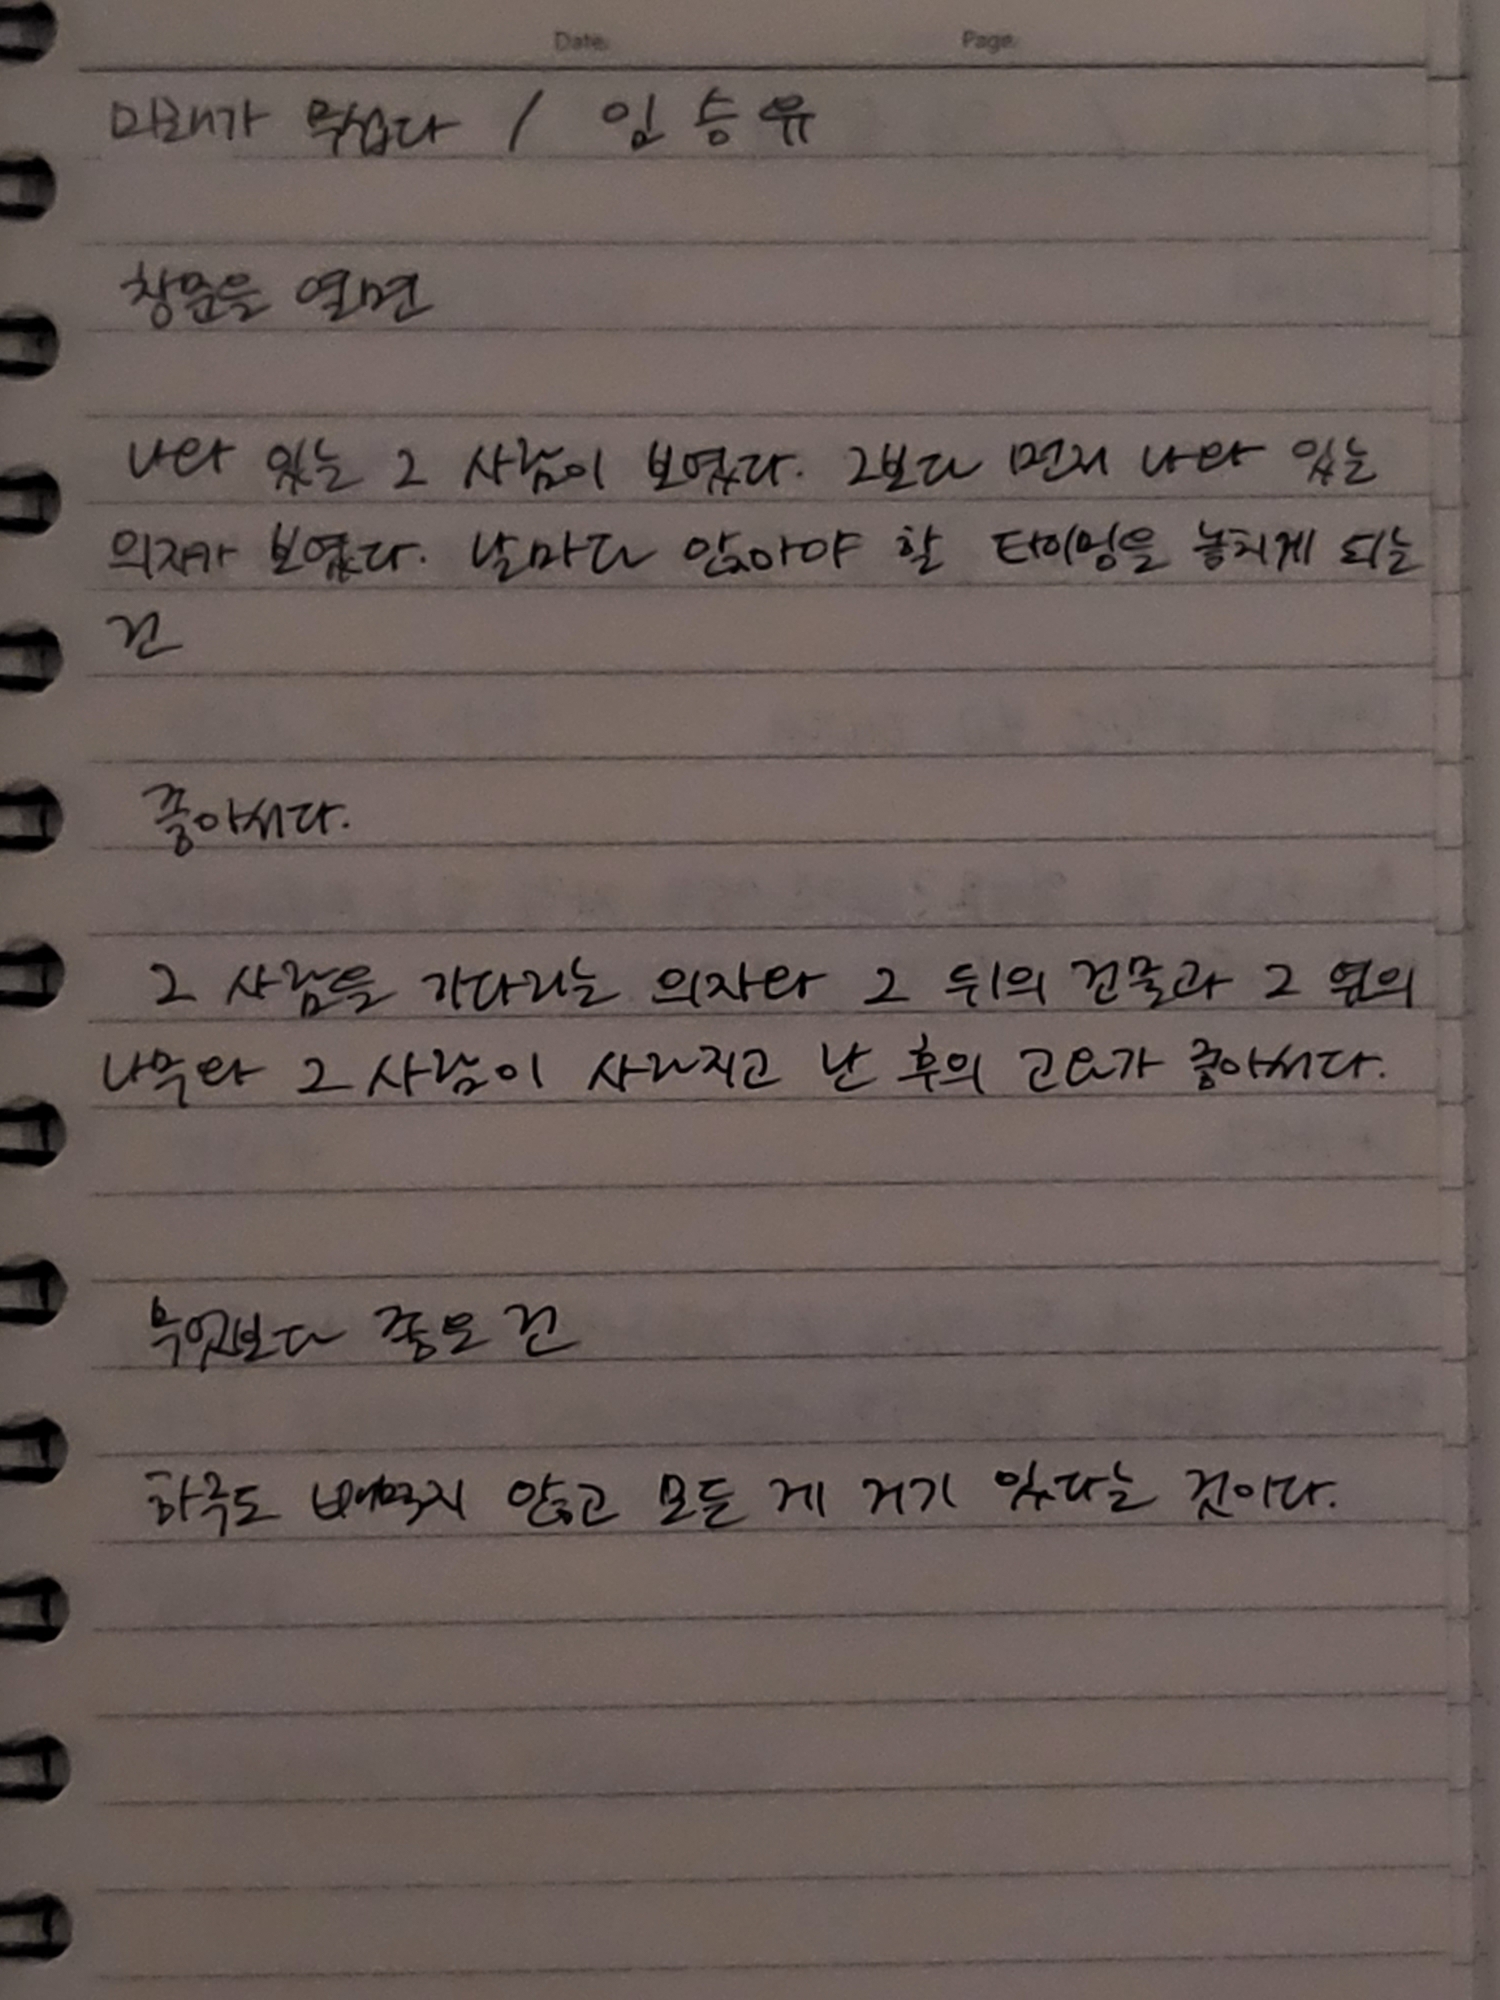 Date.
Page.
미래가 무섭다 / 임승유
창문을 열면
나와 있는 그 사람이 보였다. 그보다 먼저 나와 있는
의자가 보였다. 날마다 앉아야 할 타이밍을 놓치게 되는
건
좋아서다.
그 사람을 기다리는 의자와 그 뒤의 건물과 그 옆의
나무와 그 사람이 사라지고 난 후의 고요가 좋아서다.
무엇보다 좋은 건
하루도 빼먹지 않고 모든 게 거기 있다는 것이다.